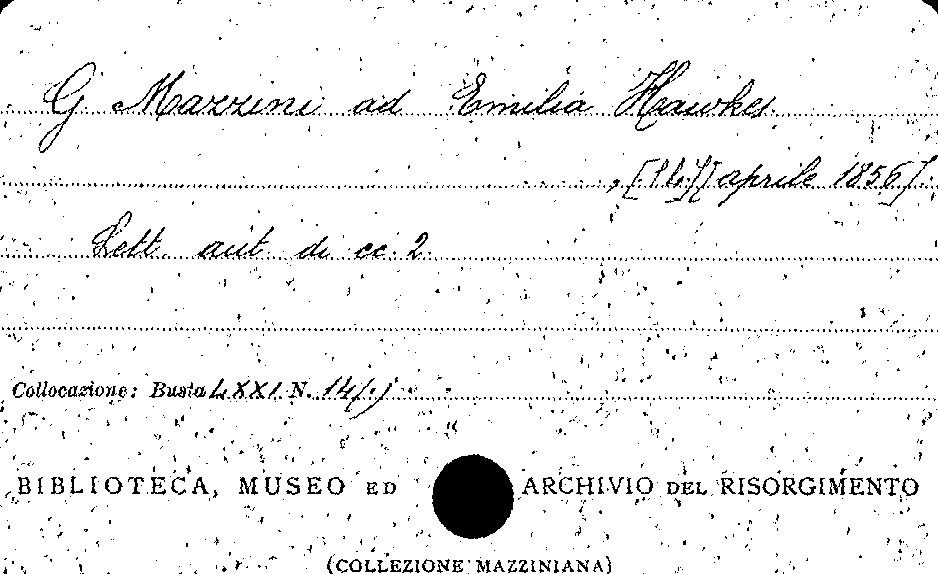 G Mazzini ad Emilia Hawkes
, [14] [aprile 1856].
Lett. aut. di cc. 2.
Collocazione: Busta LXXI N. 14/1)
BIBLIOTECA, MUSEO ED ARCHIVIO DEL RISORGIMENTO
(COLLEZIONE MAZZINIANA)